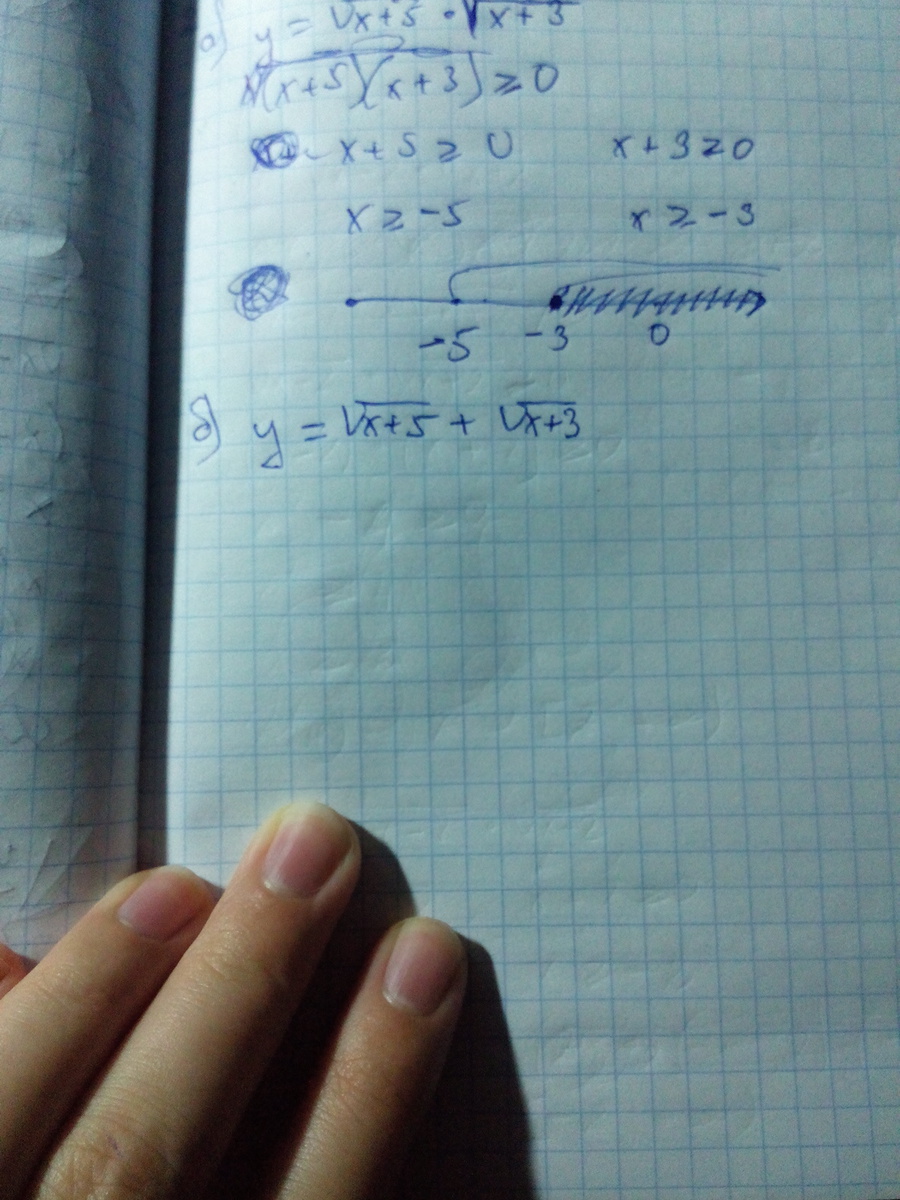 а) y = √x+5 · √x+3
√(x+5)(x+3) ≥ 0
x+5 ≥ 0 x+3≥0
x ≥ -5 x ≥ -3
-5 -3 0
б) y = √x+5 + √x+3